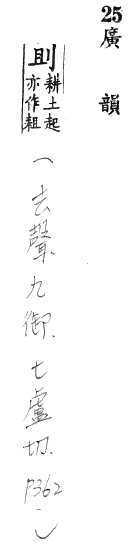 25 廣韻
刞 耕土起
亦作耝
(去聲. 九御. 七慮切. P362.)